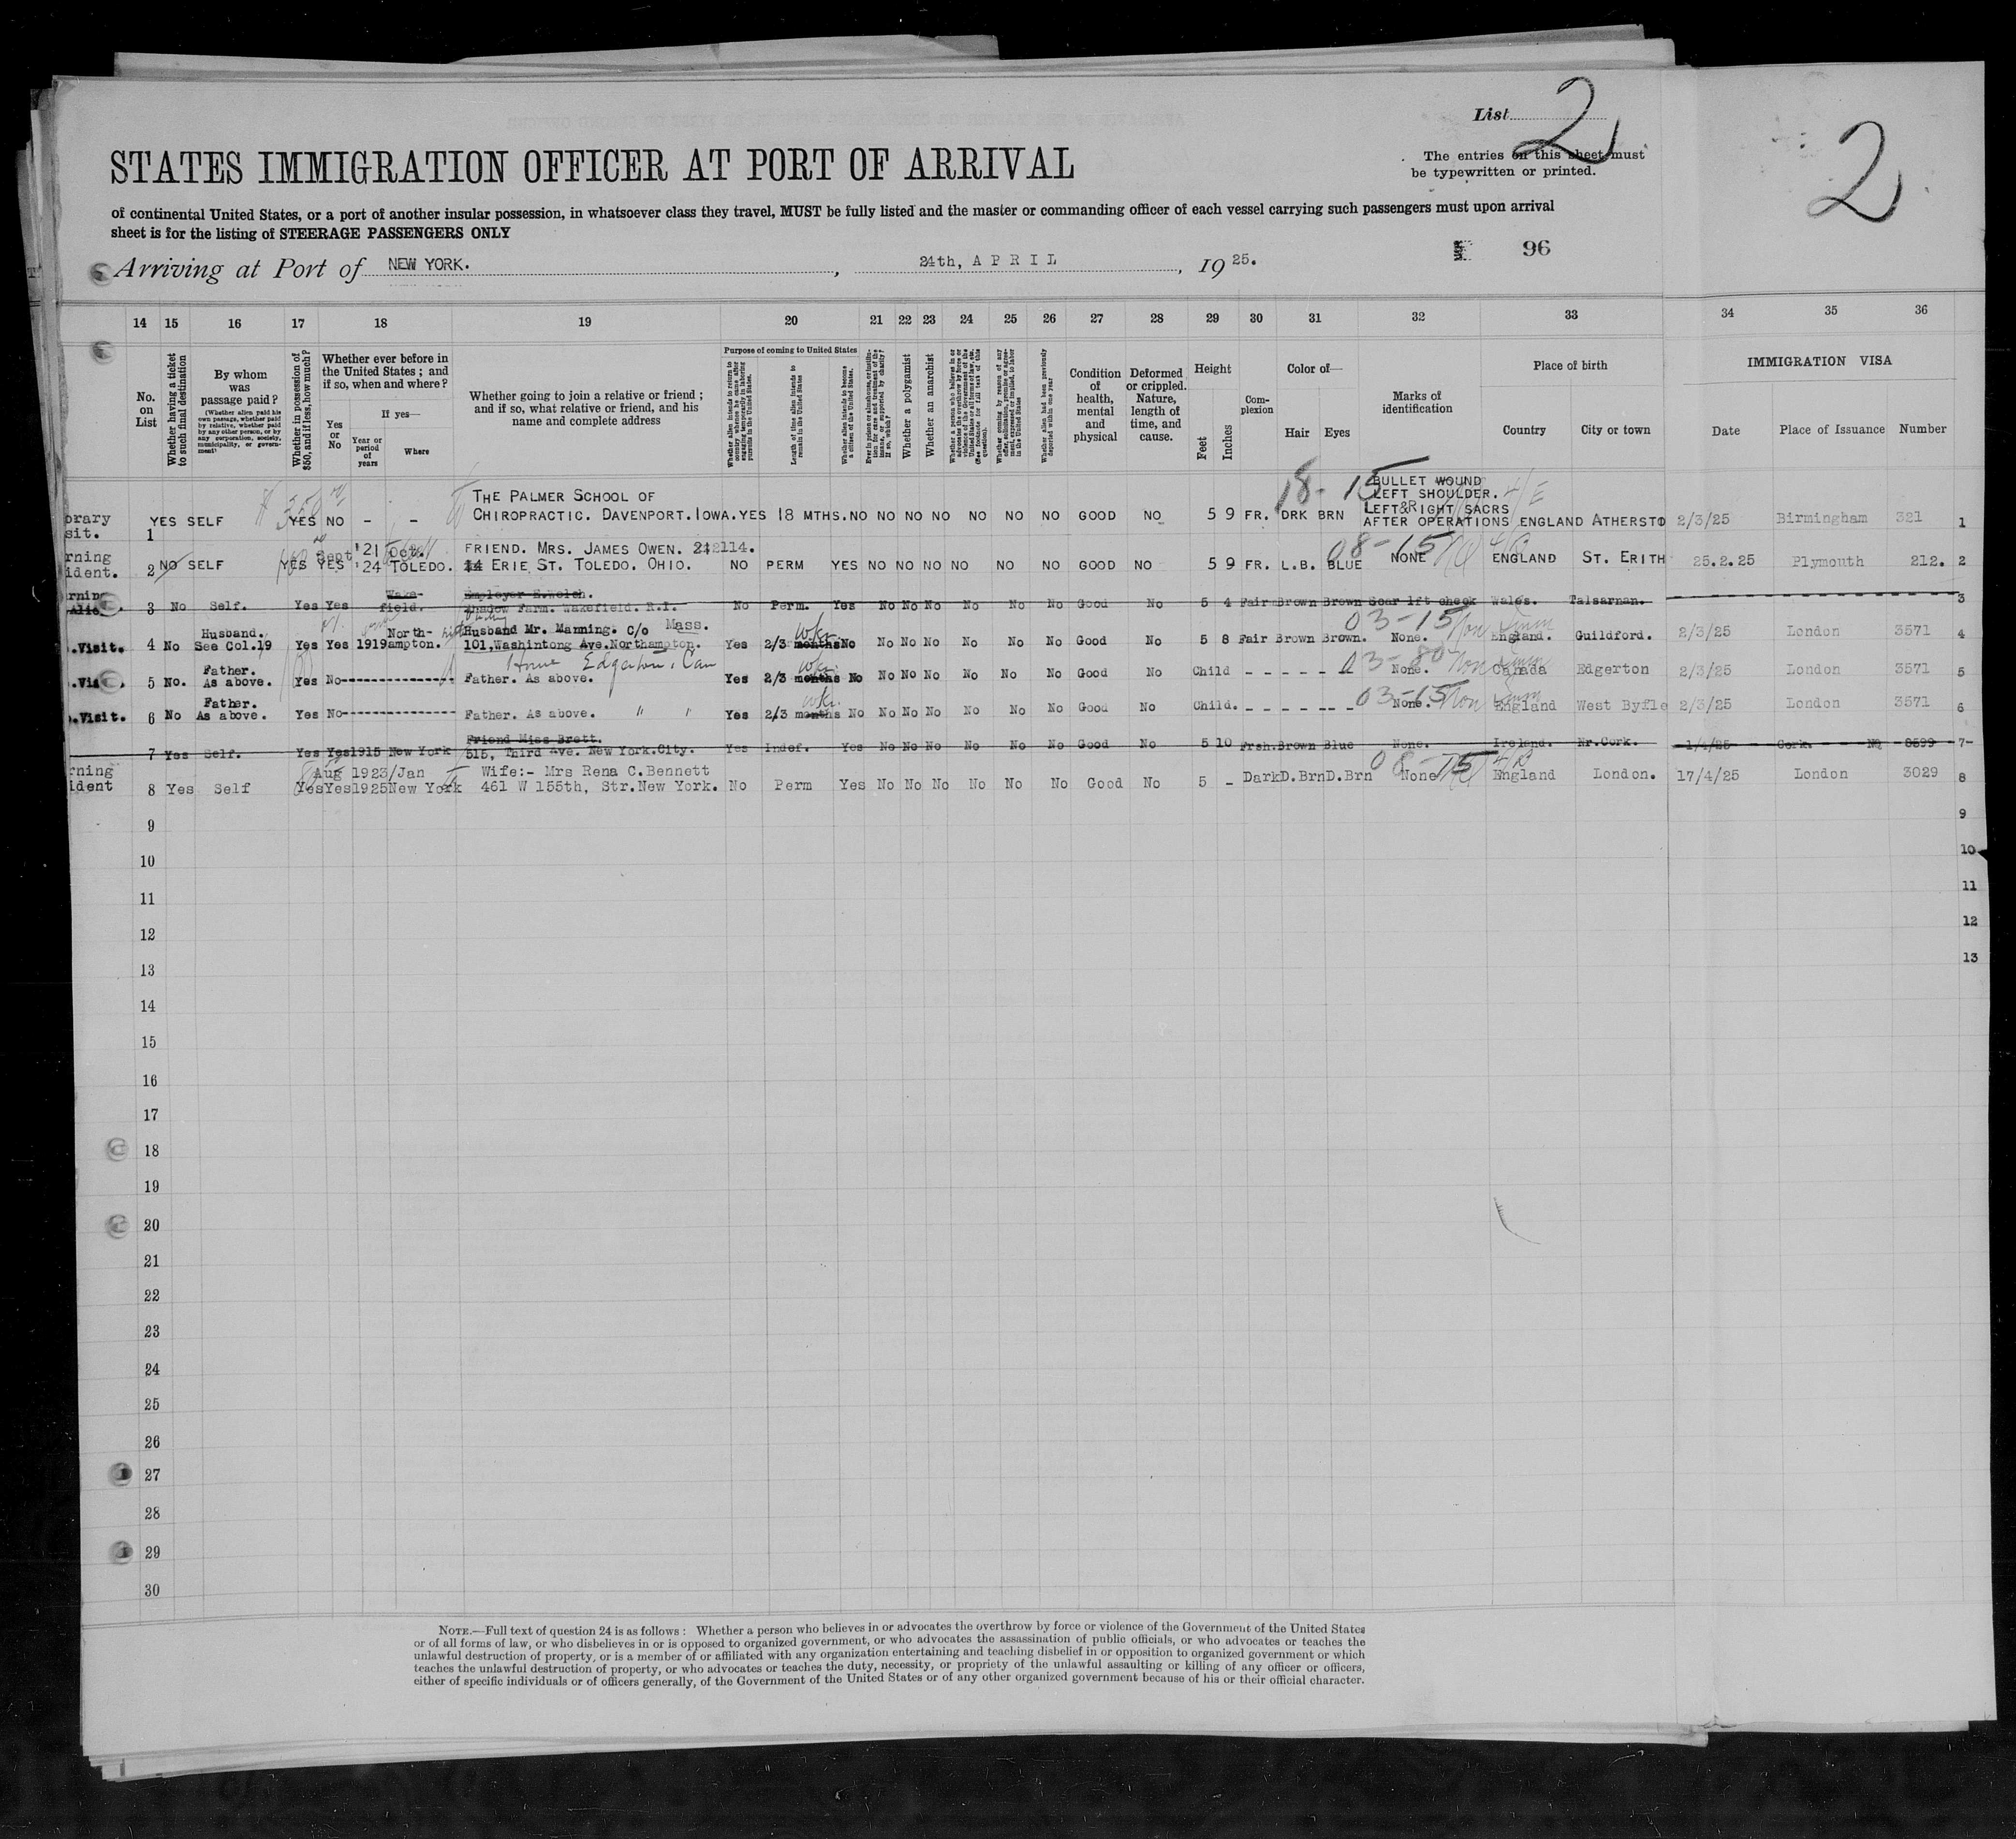 List 2
2
The entries on this sheet must
be typewritten or printed.
STATES IMMIGRATION OFFICER AT PORT OF ARRIVAL
of continental United States, or a port of another insular possession, in whatsoever class they travel, MUST be fully listed and the master or commanding officer of each vessel carrying such passengers must upon arrival
sheet is for the listing of STEERAGE PASSENGERS ONLY
96
Arriving at Port of NEW YORK. , 24th, APRIL , 1925.
14 15 16 17 18 19 20 21 22 23 24 25 26 27 28 29 30 31 32 33 34 35 36
No. on List
Whether having a ticket to such final destination
By whom was passage paid?
(Whether alien paid his own passage, whether paid by relative, whether paid by any other person, or by any corporation, society, municipality, or government)
Whether in possession of $50, and if less, how much?
Whether ever before in the United States; and if so, when and where?
Yes or No
If yes—
Year or period of years
Where
Whether going to join a relative or friend; and if so, what relative or friend, and his name and complete address
Purpose of coming to United States
Whether alien intends to return to country whence he came after engaging temporarily in laboring pursuits in the United States.
Length of time alien intends to remain in the United States
Whether alien intends to become a citizen of the United States.
Whether a polygamist
Whether an anarchist
Whether alien had been previously deported within one year
Condition of health, mental and physical
Deformed or crippled. Nature, length of time, and cause.
Height
Feet
Inches
Complexion
Color of—
Hair Eyes
Marks of identification
Place of birth
Country City or town
IMMIGRATION VISA
Date Place of Issuance Number
18-15 BULLET WOUND
THE PALMER SCHOOL OF LEFT SHOULDER.
LEFT & RIGHT SACRS
orary
sit. 1 YES SELF YES NO - - CHIROPRACTIC. DAVENPORT. IOWA. YES 18 MTHS. NO NO NO NO NO NO NO NO GOOD NO 5 9 FR. DRK BRN AFTER OPERATIONS ENGLAND ATHERSTO 2/3/25 Birmingham 321 1
rning Sept '21 Oct. FRIEND. MRS. JAMES OWEN. 2114. 08-15
ident. 2 NO SELF YES YES '24 TOLEDO. ERIE ST. TOLEDO. OHIO. NO PERM YES NO NO NO NO NO NO GOOD NO 5 9 FR. L.B. BLUE NONE ENGLAND ST. ERITH 25.2.25 Plymouth 212. 2
rning Wake- Employer E.Welch.
3 No Self. Yes Yes field. Shadow Farm. Wakefield. R.I. No Perm. Yes No No No No No No Good No 5 4 Fair Brown Brown Scar lft cheek Wales. Talsarnan. 3
Husband. North- Husband Mr. Manning. C/o Mass. wks 03-15
.Visit. 4 No See Col.19 Yes Yes 1919 ampton. 101, Washintong Ave. Northampton. Yes 2/3 months No No No No No No No Good No 5 8 Fair Brown Brown. None. England. Guildford. 2/3/25 London 3571 4
Father. Edgerton, Can wks 03-80
5 No. As above. Yes No Father. As above. Yes 2/3 months No No No No No No No Good No Child None. Canada Edgerton 2/3/25 London 3571 5
Father. wks 03-15
.Visit. 6 No As above. Yes No Father. As above. " " Yes 2/3 months No No No No No No No Good No Child. None. England West Byfle 2/3/25 London 3571 6
Friend Miss Brett.
7 Yes Self. Yes Yes 1915 New York 515, Third Ave. New York.City. Yes Indef. Yes No No No No No No Good No 5 10 Frsh. Brown Blue None. Ireland. Nr.Cork. 1/4/25 Cork. No 8599 7
rning Aug 1923/Jan Wife:- Mrs Rena C.Bennett 08-15
ident 8 Yes Self Yes Yes 1925 New York 461 W 155th, Str.New York. No Perm Yes No No No No No No Good No 5 - Dark D.Brn D.Brn None England London. 17/4/25 London 3029 8
9 9
10 10
11 11
12 12
13 13
14
15
16
17
18
19
20
21
22
23
24
25
26
27
28
29
30
NOTE.—Full text of question 24 is as follows: Whether a person who believes in or advocates the overthrow by force or violence of the Government of the United States
or of all forms of law, or who disbelieves in or is opposed to organized government, or who advocates the assassination of public officials, or who advocates or teaches the
unlawful destruction of property, or is a member of or affiliated with any organization entertaining and teaching disbelief in or opposition to organized government or which
teaches the unlawful destruction of property, or who advocates or teaches the duty, necessity, or propriety of the unlawful assaulting or killing of any officer or officers,
either of specific individuals or of officers generally, of the Government of the United States or of any other organized government because of his or their official character.